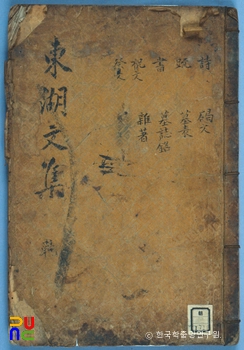 詩 碣文
疏 墓表
書 墓誌銘
祝文 雜著
祭文
東湖文集
ⓒ 한국학중앙연구원